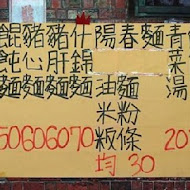 餛飩麵 50
豬心麵 60
豬肝麵 60
什錦麵 70
陽春麵
油麵
米粉
粄條
均 30
青菜湯 20